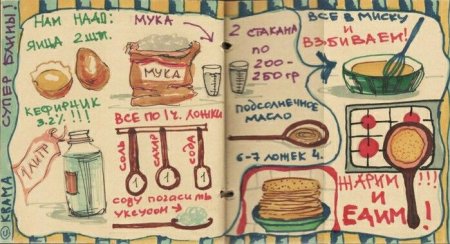 СУПЕР БЛИНЫ!
© КRAMA
НАМ НАДО:
ЯИЦА 2 ШТ.
МУКА
МУКА
2 СТАКАНА
ПО
200-
250 ГР
КЕФИРЧИК
3.2% !!!
1 ЛИТР
ВСЕ ПО 1 Ч. ЛОЖКИ
СОЛЬ
САХАР
СОДА
1
1
1
СОДУ ПОГАСИТЬ
УКСУСОМ
ВСЕ В МИСКУ
И
ВЗБИВАЕМ!
ПОДСОЛНЕЧНОЕ
МАСЛО
6-7 ЛОЖЕК Ч.
ЖАРИМ И !!!
ЕДИМ!